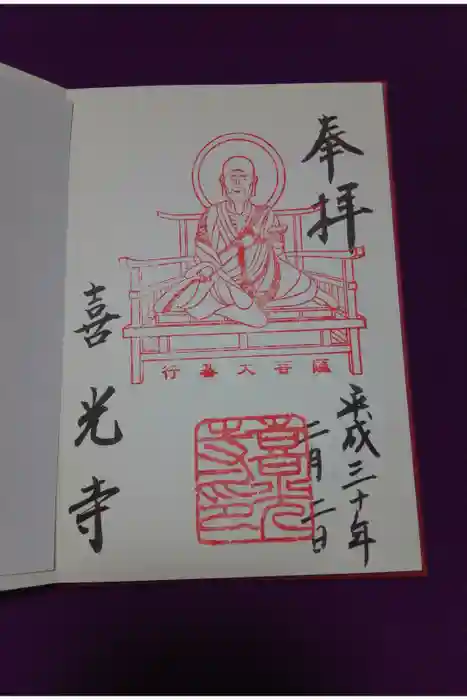 奉拝
平成三十年
二月二日
行基大菩薩
喜光寺印
喜光寺